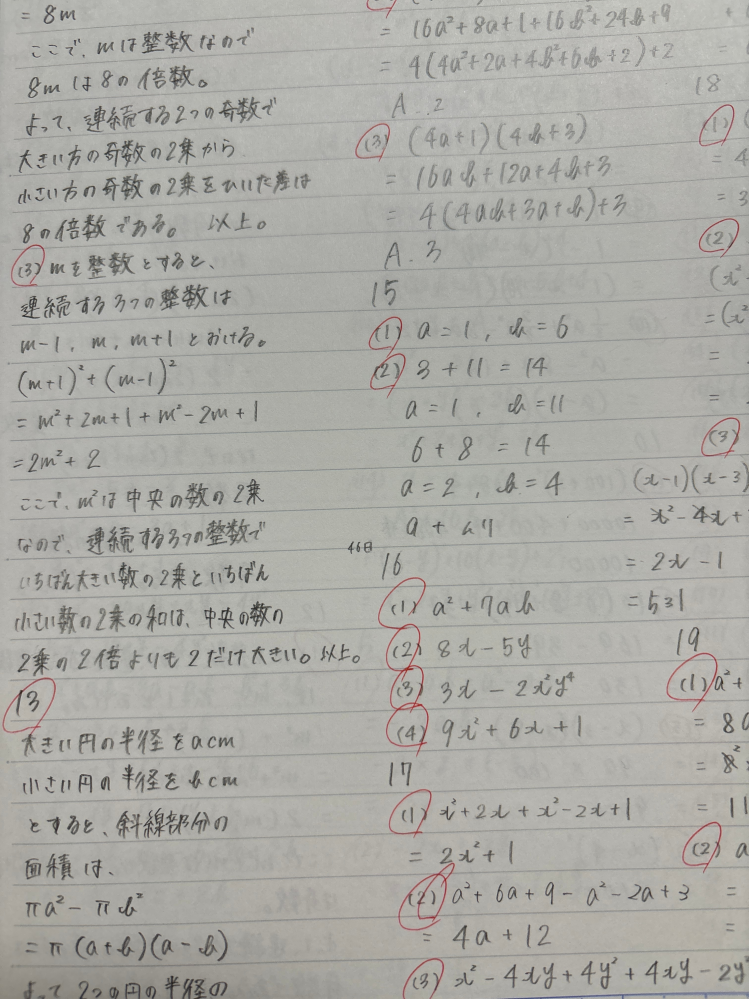 = 8m
ここで、mは整数なので
8mは8の倍数。
よって、連続する2つの奇数で
大きい方の奇数の2乗から
小さい方の奇数の2乗をひいた差は
8の倍数である。 以上。
(3) mを整数とすると、
連続する3つの整数は
m-1, m, m+1 とおける。
(m+1)²+(m-1)²
= m²+2m+1+m²-2m+1
=2m²+2
ここで、m²は中央の数の2乗
なので、連続する3つの整数で
いちばん大きい数の2乗といちばん
小さい数の2乗の和は、中央の数の
2乗の2倍よりも2だけ大きい。以上。
13
大きい円の半径をacm
小さい円の半径をbcm
とすると、斜線部分の
面積は、
πa²-πb²
=π(a+b)(a-b)
よって2つの円の半径の
= 16a²+8a+1+16b²+24b+9
= 4(4a²+2a+4b²+6b+2)+2
A. 2
(3) (4a+1)(4b+3)
= 16ab+12a+4b+3
= 4(4ab+3a+b)+3
A. 3
15
(1) a=1, b=6
(2) 3+11=14
a=1, b=11
6+8=14
a=2, b=4
46日
16
(1) a²+7ab
(2) 8x-5y
(3) 3x-2x²y⁴
(4) 9x²+6x+1
17
(1) x²+2x+x²-2x+1
= 2x²+1
(2) a²+6a+9-a²-2a+3
= 4a+12
(3) x²-4xy+4y²+4xy-2y²
18
(1)
= 4
= 3
(2)
(x²-
=(x²
=
=
(3)
(x-1)(x-3)
= x²-4x+
= 2x-1
=531
19
(1) a²+
= 8a
= 11
(2) a
=
=